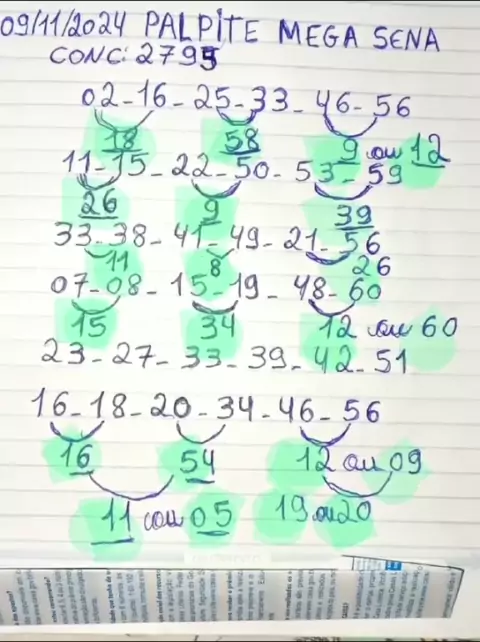 09/11/2024 PALPITE MEGA SENA
CONC: 2795
02-16-25-33-46-56
18 58 9 ou 12
11-15-22-50-53-59
26 9 39
33-38-41-49-21-56
11 8 26
07-08-15-19-48-60
15 34 12 ou 60
23-27-33-39-42-51
16-18-20-34-46-56
16 54 12 ou 09
11 ou 05 19 ou 20